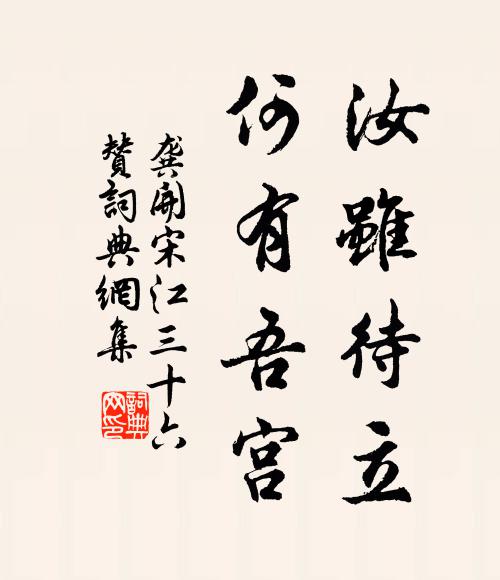 汝雖待立
何有吾宫
龔開宋江三十六
贊詞典網集
詞典
网印